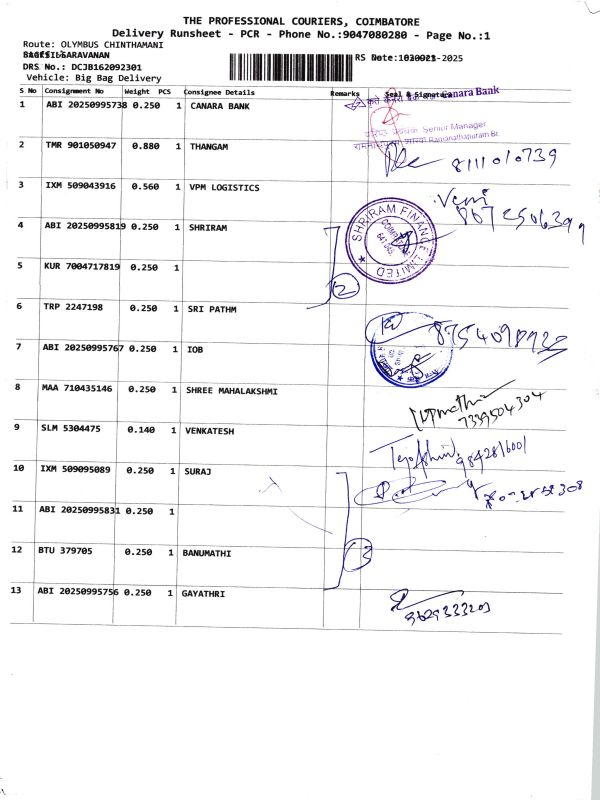 THE PROFESSIONAL COURIERS, COIMBATORE
Delivery Runsheet - PCR - Phone No.:9047080280 - Page No.:1
Route: OLYMBUS CHINTHAMANI
DRS No.: DCJB162092301
RS Date:
-2025
Vehicle: Big Bag Delivery
S No Consignment No Weight PCS Consignee Details Remarks Seal & Signature
1 ABI 20250995738 0.250 1 CANARA BANK
Canara Bank
Senior Manager
Ramanathapuram Br.
2 TMR 901050947 0.880 1 THANGAM
8111010739
3 IXM 509043916 0.560 1 VPM LOGISTICS
4 ABI 20250995819 0.250 1 SHRIRAM
SHRIRAM FINANCE LIMITED
5 KUR 7004717819 0.250 1
2
6 TRP 2247198 0.250 1 SRI PATHM
7 ABI 20250995767 0.250 1 IOB
8 MAA 710435146 0.250 1 SHREE MAHALAKSHMI
7339504304
9 SLM 5304475 0.140 1 VENKATESH
9842816001
10 IXM 509095089 0.250 1 SURAJ
11 ABI 20250995831 0.250 1
12 BTU 379705 0.250 1 BANUMATHI
3
13 ABI 20250995756 0.250 1 GAYATHRI
9629333203